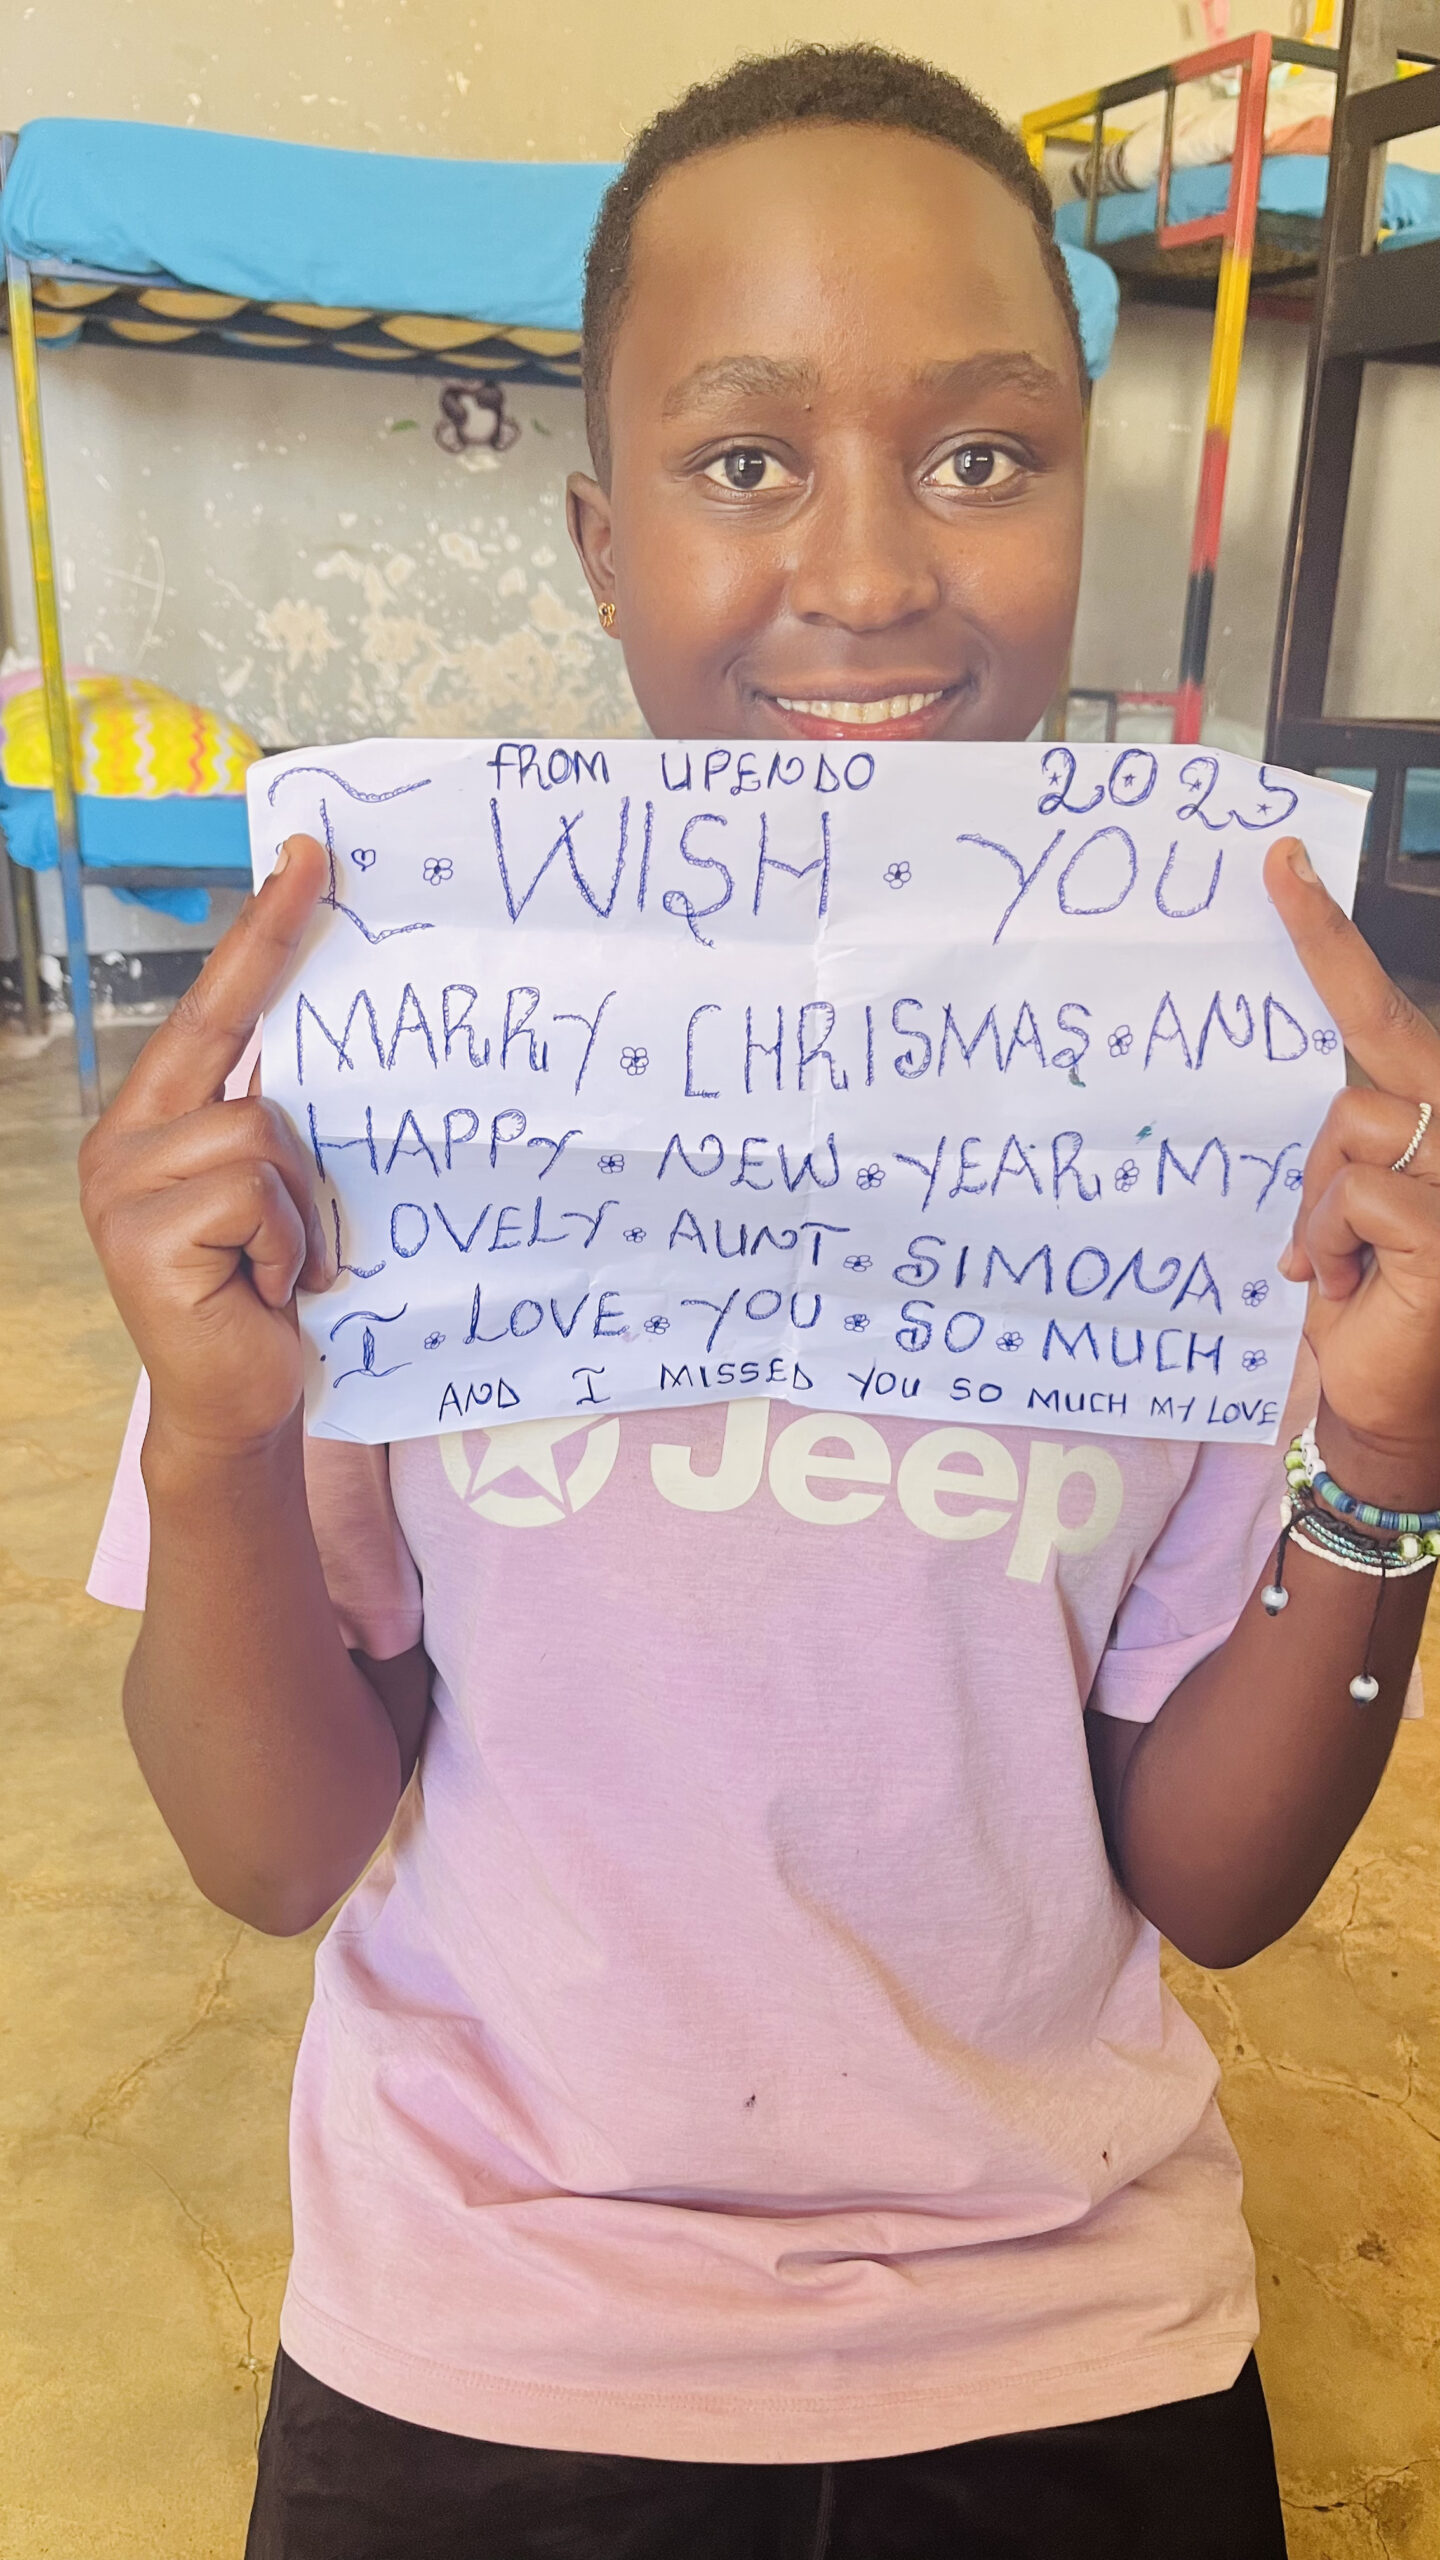 FROM UPENDO 2025
I WISH YOU
MARRY CHRISMAS AND
HAPPY NEW YEAR MY
LOVELY AUNT SIMONA
I LOVE YOU SO MUCH
AND I MISSED YOU SO MUCH MY LOVE
Jeep